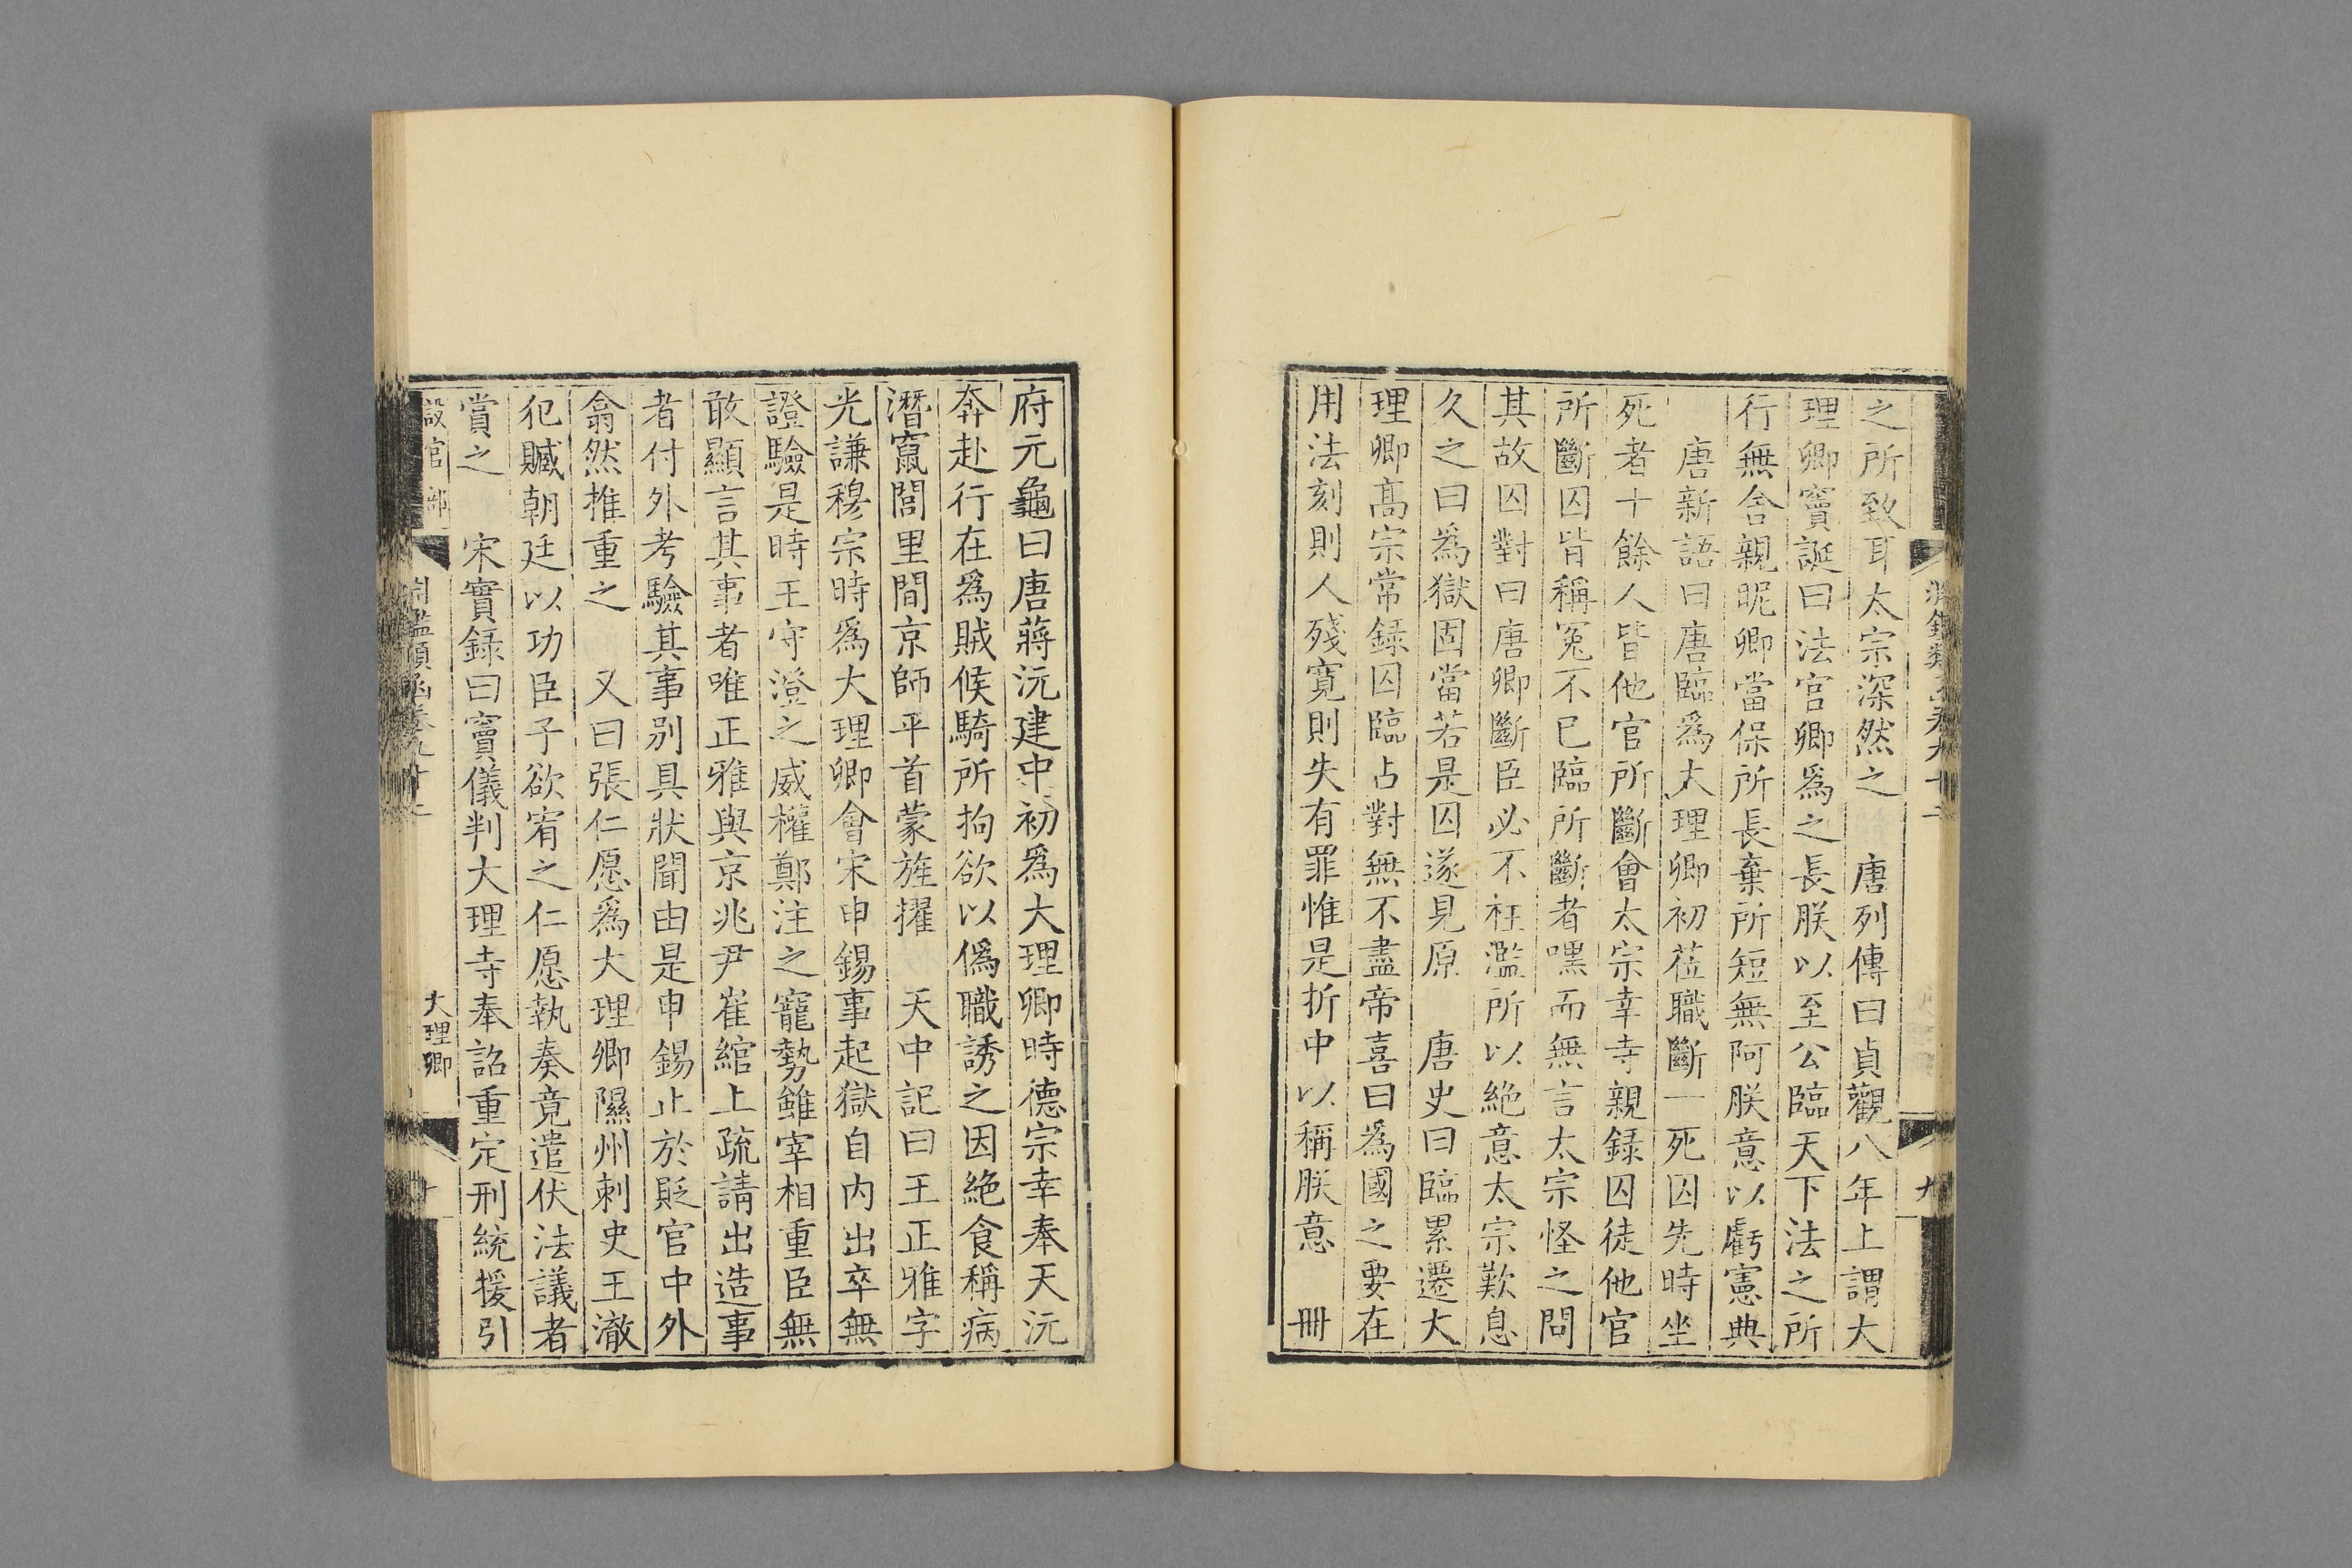 之所致耳太宗深然之　唐列傳曰貞觀八年上謂大
理卿竇誕曰法官卿爲之長朕以至公臨天下法之所
行無舍親昵卿當保所長棄所短無阿朕意以虧憲典
唐新語曰唐臨爲大理卿初莅職斷一死囚先時坐
死者十餘人皆他官所斷會太宗幸寺親録囚徒他官
所斷囚皆稱寃不已臨所斷者嘿而無言太宗怪之問
其故囚對曰唐卿斷臣必不枉濫所以絶意太宗歎息
久之曰爲獄固當若是囚遂見原　唐史曰臨累遷大
理卿髙宗常録囚臨占對無不盡帝喜曰爲國之要在
用法刻則人殘寛則失有罪惟是折中以稱朕意　冊
九
府元龜曰唐蔣沇建中初爲大理卿時德宗幸奉天沇
奔赴行在爲賊候騎所拘欲以僞職誘之因絶食稱病
潛竄閭里間京師平首蒙旌擢　天中記曰王正雅字
光謙穆宗時爲大理卿會宋申錫事起獄自内出卒無
證驗是時王守澄之威權鄭注之寵勢雖宰相重臣無
敢顯言其事者唯正雅與京兆尹崔綰上疏請出造事
者付外考驗其事别具狀聞由是申錫止於貶官中外
翕然推重之　又曰張仁愿爲大理卿隰州刺史王澈
犯贓朝廷以功臣子欲宥之仁愿執奏竟遣伏法議者
賞之　宋實録曰竇儀判大理寺奉詔重定刑統援引
設官部
淵鑑類函卷九十二
大理卿
十